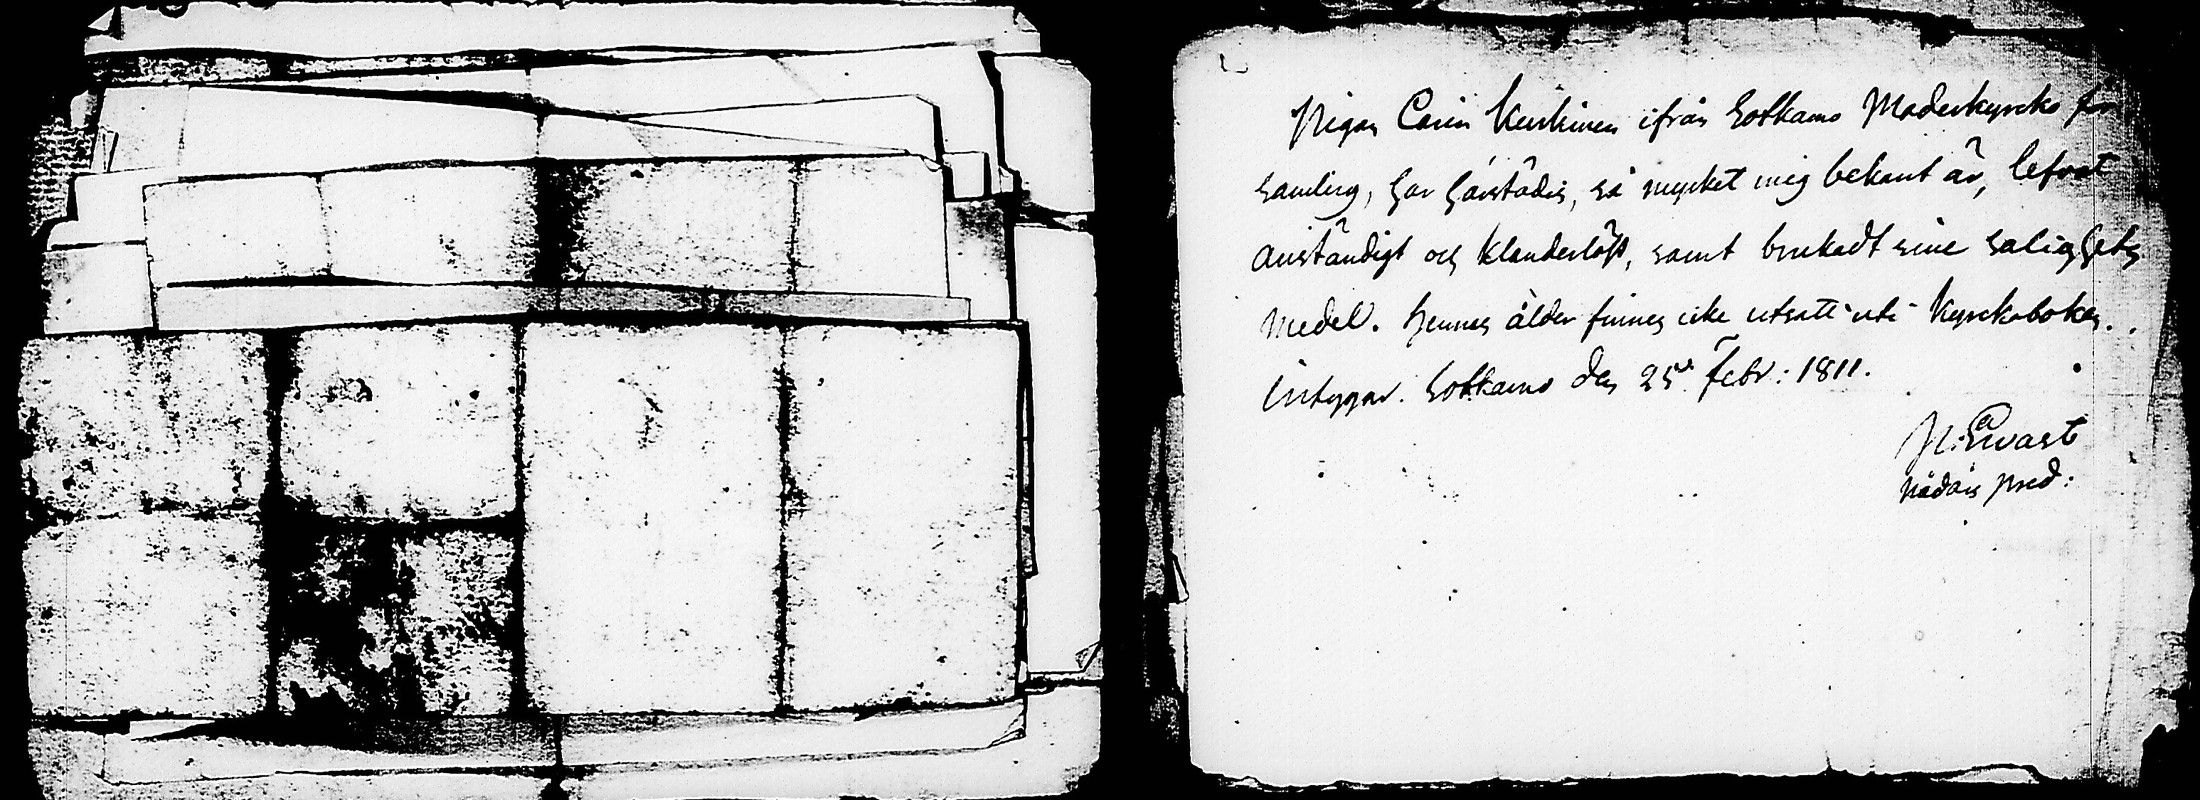 Pigan Carin Keinänen ifrån Sotkamo Moderkyrko för
samling, har härstädes, så mycket mig bekant är, lefvat
anständigt och klanderlöst, samt brukadt sine salighets
medel. Hennes ålder finnes icke utsatt uti Kyrckoboken.
intygar. Sotkamo den 25de Febr: 1811.
N: Ewast
Nådårs pred: